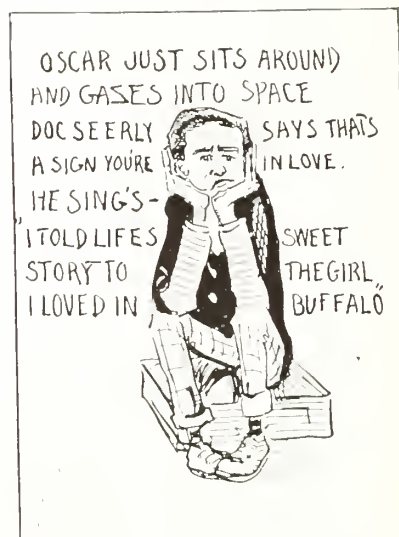 OSCAR JUST SITS AROUND
AND GASES INTO SPACE
DOC SEERLY SAYS THATS
A SIGN YOU'RE IN LOVE.
HE SING'S-
"I TOLD LIFES SWEET
STORY TO THE GIRL
I LOVED IN BUFFALO"